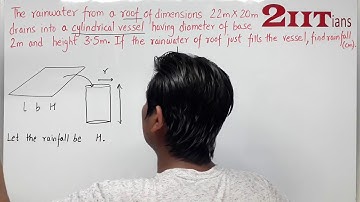 The rainwater from a roof of dimensions 22m X 20m
drains into a cylindrical vessel having diameter of base
2m and height 3.5m. If the rainwater of roof just fills the vessel, find rainfall
(cm).
2IITians
r
L b H
Let the rainfall be H.